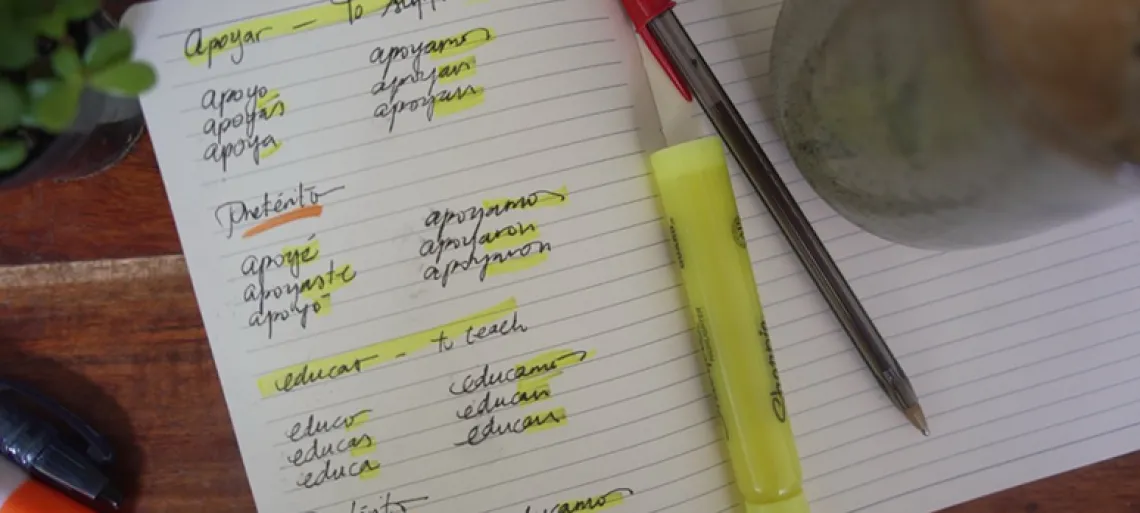 Apoyar - To
apoyo apoyamos
apoyas apoyan
apoya apoyan
Pretérito
apoyé apoyamos
apoyaste apoyaron
apoyó apoyaron
educar - to teach
educo educamos
educas educan
educa educan